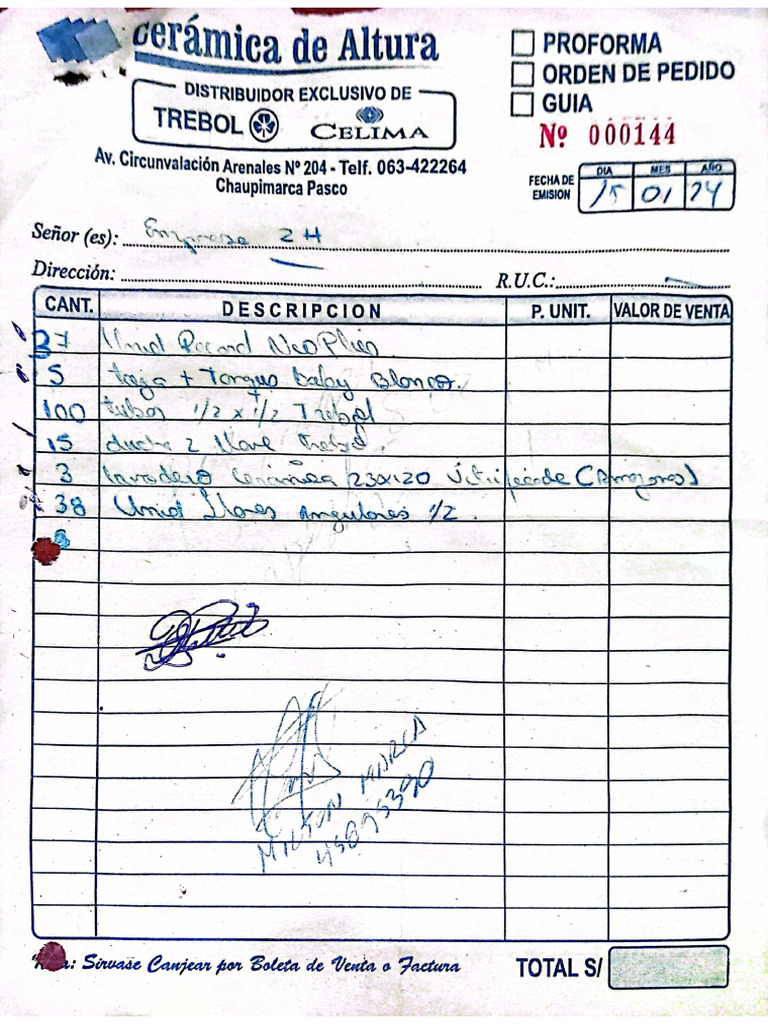 cerámica de Altura
DISTRIBUIDOR EXCLUSIVO DE
TREBOL CELIMA
Av. Circunvalación Arenales Nº 204 - Telf. 063-422264
Chaupimarca Pasco
PROFORMA
ORDEN DE PEDIDO
GUIA
Nº 000144
FECHA DE EMISION DIA MES AÑO
15 01 24
Señor (es): Empresa 2H
Dirección: R.U.C.:
CANT. DESCRIPCION P. UNIT. VALOR DE VENTA
37 Unid
5 + Tanque baby Blanco.
100 tubos 1/2 x 1/2 Trebol
15 ducha 2 llave Trebol.
3 lavadero 230x120
38 Unid llaves angulares 1/2.
MILTON
Nota: Sirvase Canjear por Boleta de Venta o Factura
TOTAL S/